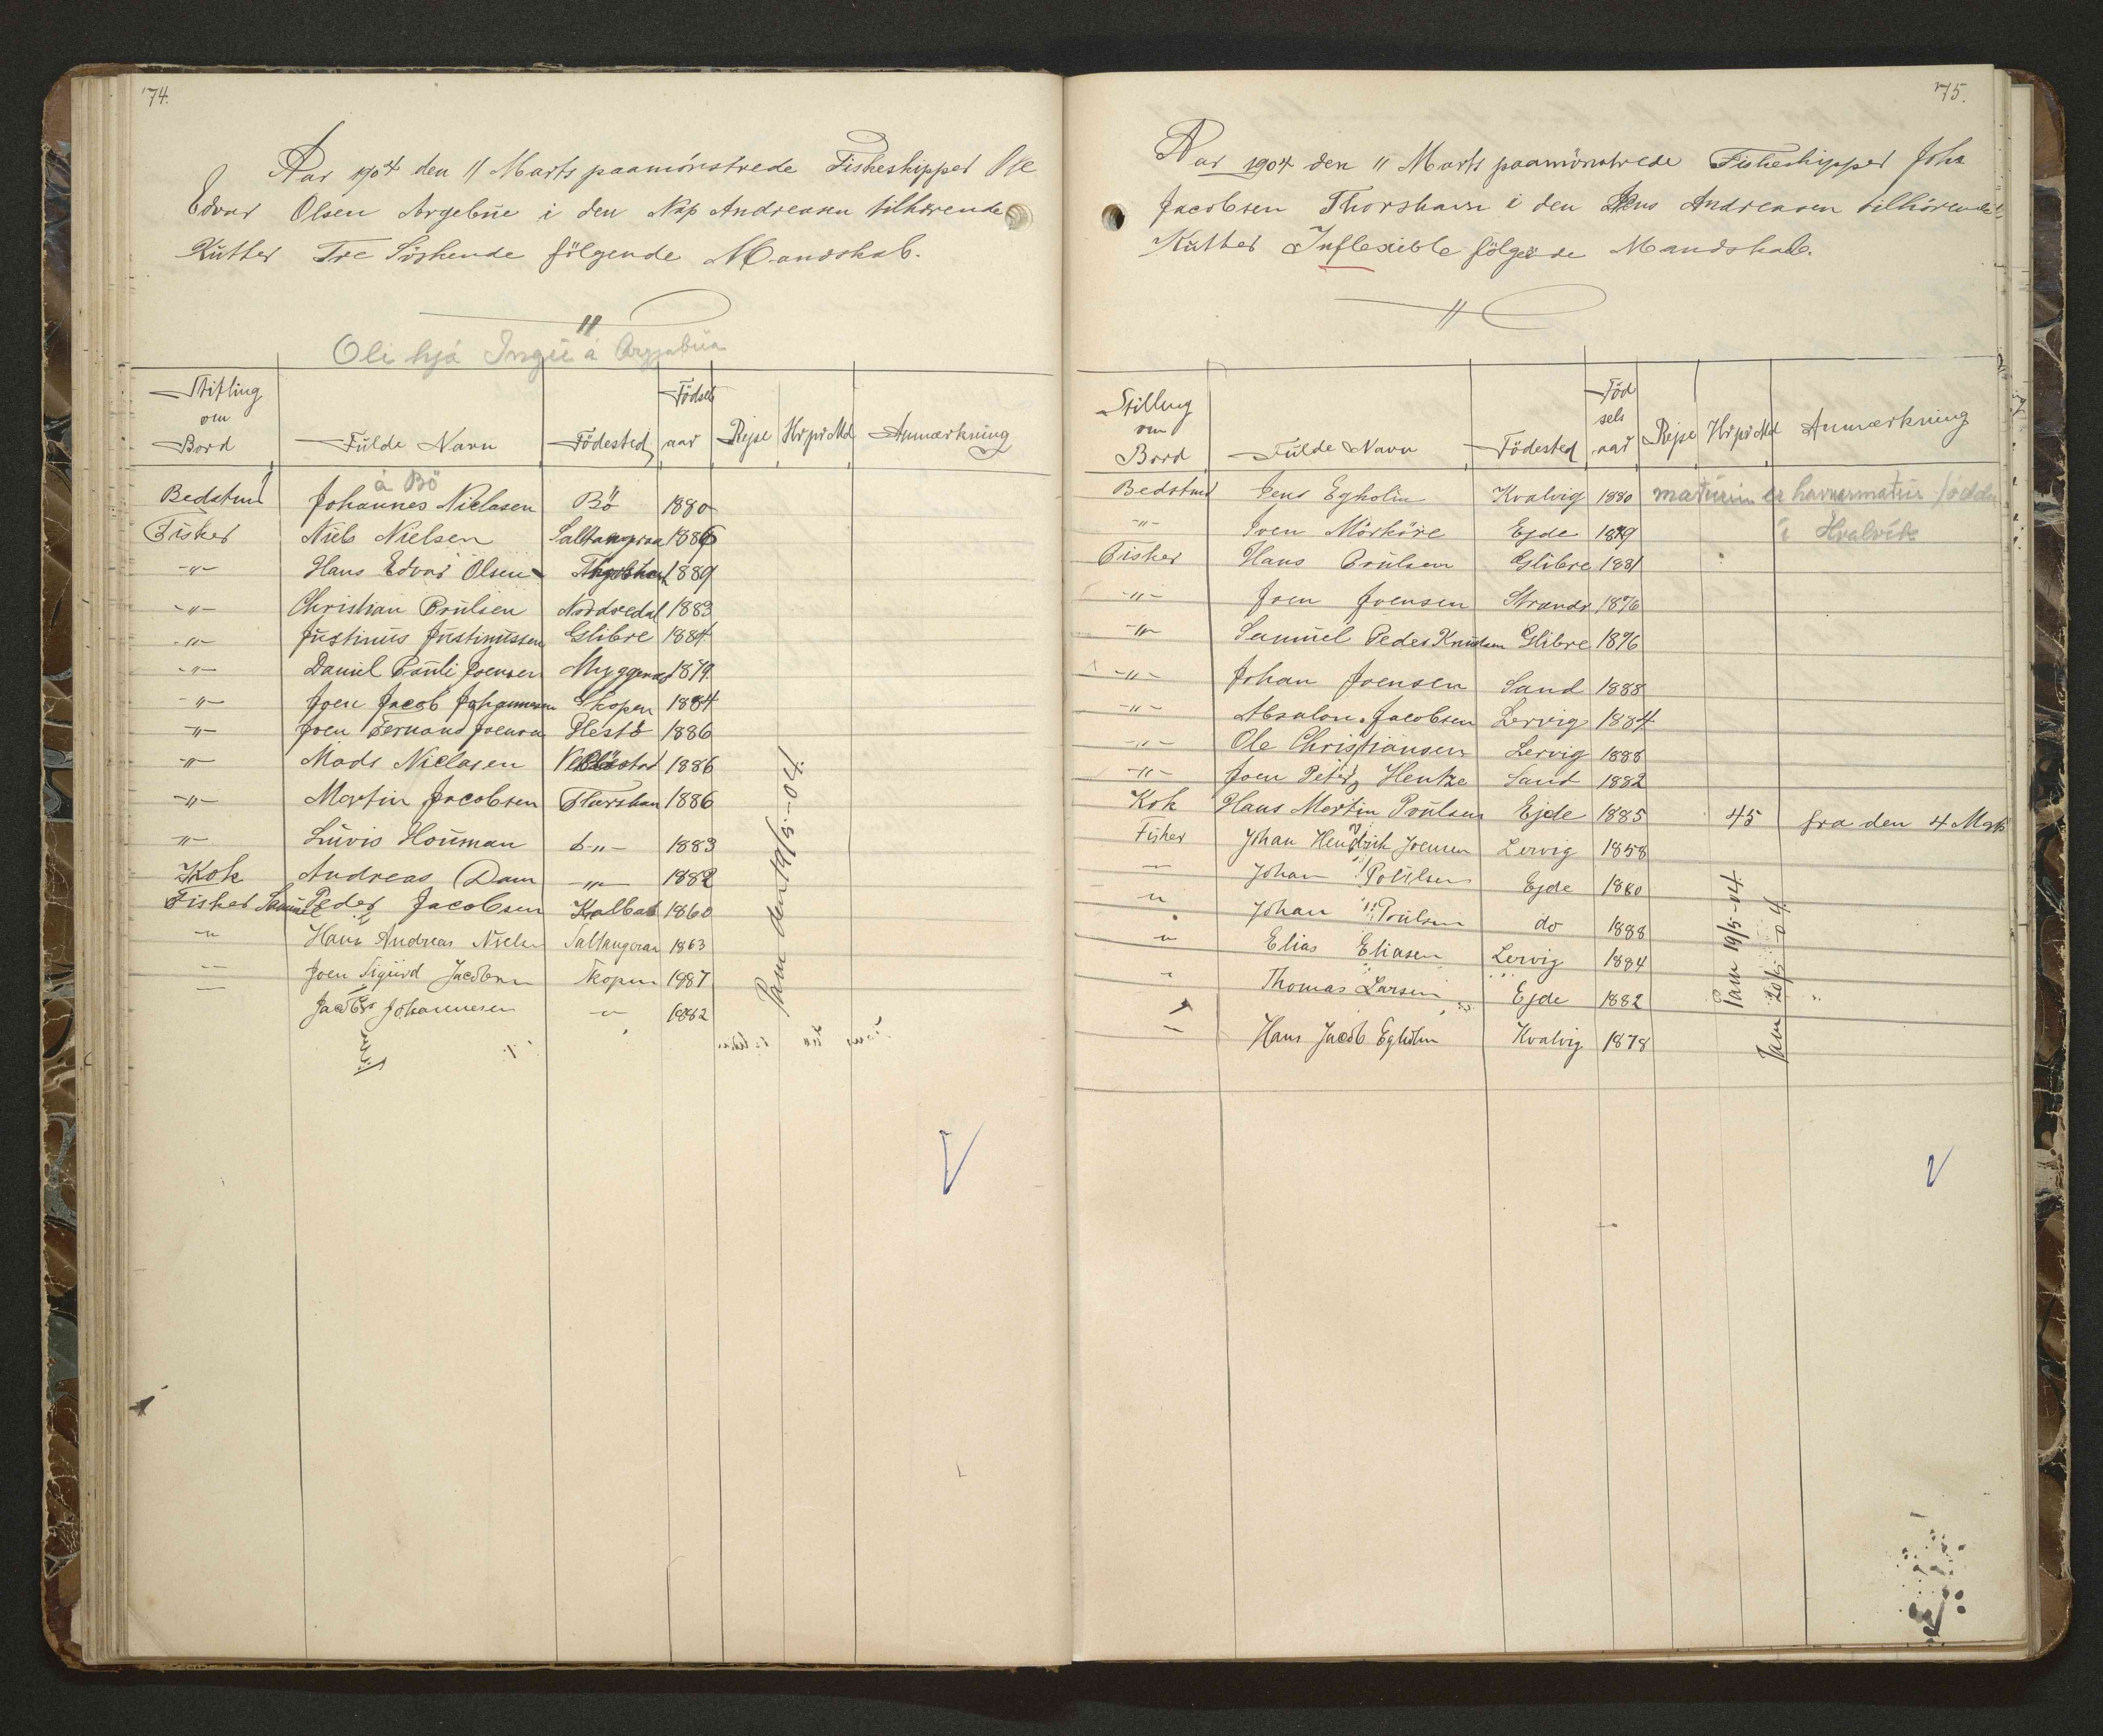 74.
Aar 1904 den 11 Marts paamönstrede Fiskeskipper Ole
Edvar Olsen Argebue i den Nap Andreasen tilhörende
Kutter Tre Söskende fölgende Mandskab.
Oli hjá Ingu á Argjabúa
Stilling om Bord Fulde Navn Födested Födsels aar Rejse Hr pr Md Anmærkning
á Bö
Bedstmd Johannes Niclasen Bö 1880
Fisker Niels Nielsen Saltangraa 1886
-"- Hans Edvar Olsen 1889
-"- Christian Poulsen Nordredal 1883
-"- Justinus Justinussen Glibre 1884
-"- Daniel Pauli Joensen Myggenæs 1879
-"- Joen Jacob Johannesen Skopen 1884
-"- Joen Fernand Joensen Hestö 1886
-"- Mads Niclasen 1886
-"- Martin Jacobsen Thorshan 1886
-"- Luvis Houman d-"- 1883
Kok Andreas Dam -"- 1882
Fisker Samuel Peder Jacobsen Kalbak 1860
-"- Hans Andreas Nielsen Saltangeraa 1863
— Joen Sigurd Jacobsen Skopun 1887
— Jacob Johannesen -"- 1882
den 19/5-04.
75.
Aar 1904 den 11 Marts paamönstrede Fiskeskipper Joha
Jacobsen Thorshavn i den Jens Andreasen tilhörende
Kutter Inflexible fölgende Mandskab.
Stilling om Bord Fulde Navn Födested Födsels aar Rejse Hr pr Md Anmærkning
Bedstmd Jens Egholm Kvalvig 1880 maðurin er havnarmaður föddur
-"- Joen Mörköre Ejde 1879 í Hvalvík
Fisker Hans Poulsen Glibre 1881
-"- Joen Joensen Strandr 1876
-"- Samuel Peder Knudsen Glibre 1876
-"- Johan Joensen Sand 1888
-"- Absalon Jacobsen Lervig 1884
-"- Ole Christiansen Lervig 1888
-"- Joen Peter Hentze Sand 1882
Kok Hans Martin Poulsen Ejde 1885 45 fra den 4 Marts
Fisker Johan Hendrik Joensen Lervig 1858
— Johan Poulsen Ejde 1880
" Johan Poulsen do 1888
" Elias Eliasen Lervig 1884
" Thomas Larsen Ejde 1882
— Hans Jacob Egholm Kvalvig 1878
19/5-04.
20/5-04.